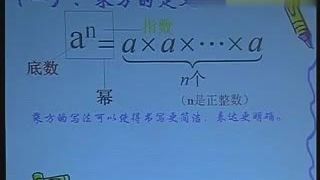 乘方的定义
指数
aⁿ = a×a×⋯×a
底数
n个
幂
(n是正整数)
乘方的写法可以使得书写更简洁，表达更明确。